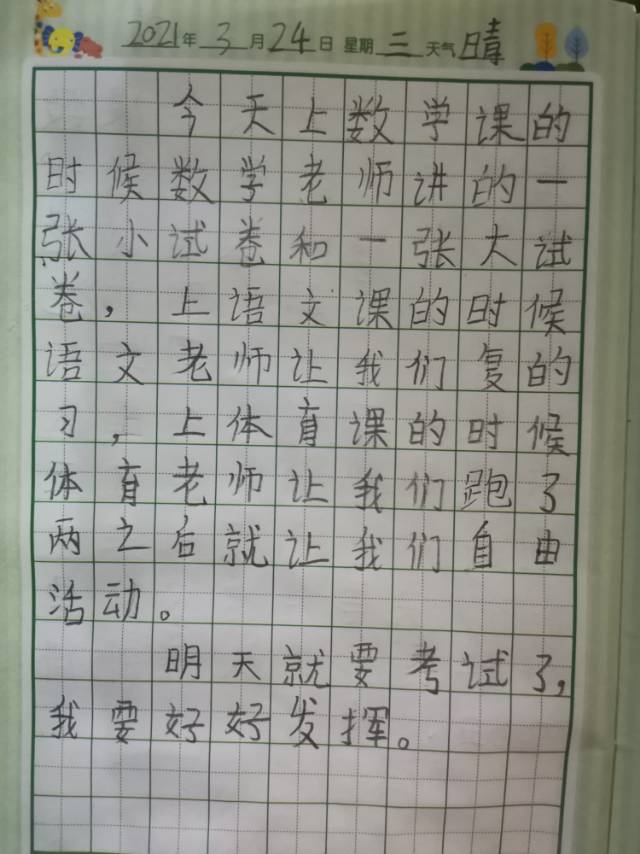 2021年3月24日 星期三 天气晴
今天上数学课的
时候数学老师讲的一
张小试卷和一张大试
卷，上语文课的时候
语文老师让我们复的
习，上体育课的时候
体育老师让我们跑了
两之后就让我们自由
活动。
明天就要考试了，
我要好好发挥。